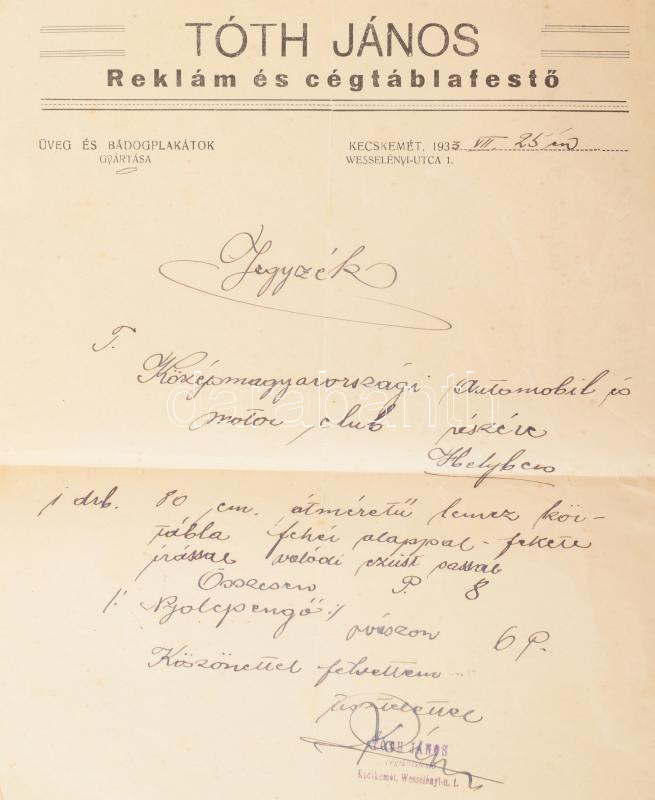 TÓTH JÁNOS
Reklám és cégtáblafestő
ÜVEG ÉS BÁDOGPLAKÁTOK
GYÁRTÁSA
KECSKEMÉT, 1933 VII. 25 én
WESSELÉNYI-UTCA 1.
Jegyzék
T.
Középmagyarországi Automobil és
motor club részére
Helyben
1 drb. 80 cm. átméretű lemez kör-
tábla fehér alappal - fekete
írással valódi ezüst sassal
Összesen P. 8
/: Nyolcpengő :/
6 P.
Köszönettel felvettem
tisztelettel
TÓTH JÁNOS
cégtáblafestő
Kecskemét, Wesselényi-u. 1.
darabanth